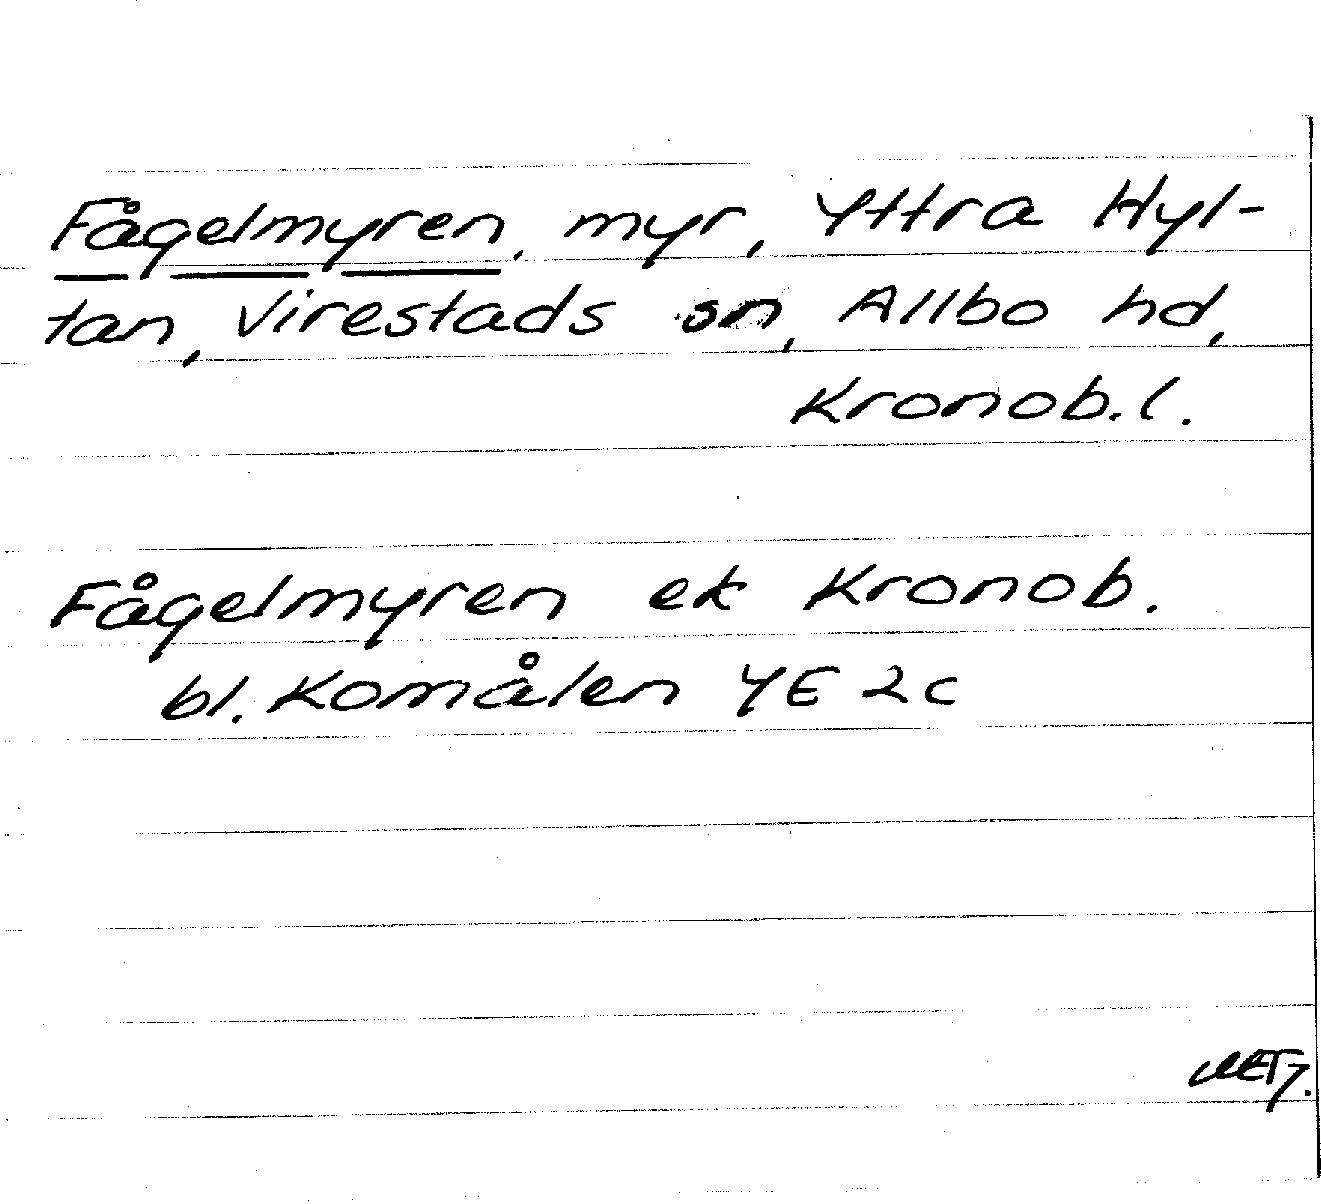 Fågelmyren, myr, Yttra Hyl-
tan, Virestads sn, Allbo hd,
Kronob.l.
Fågelmyren ek Kronob.
bl. Komålen 4E 2c